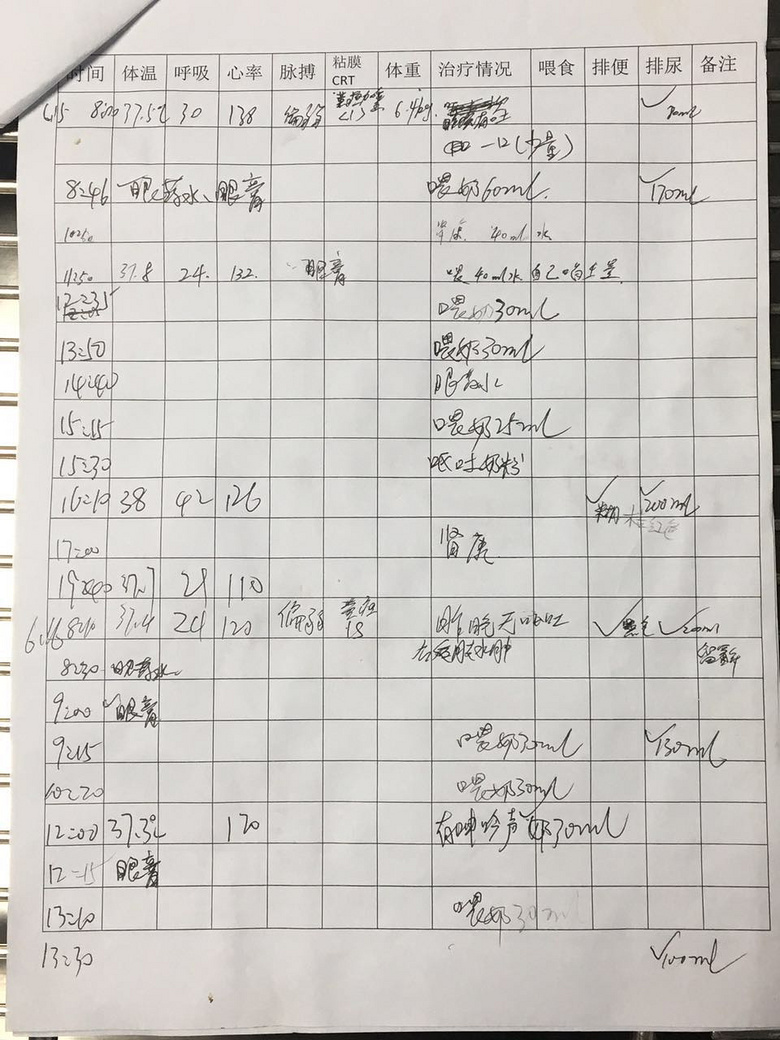 时间 体温 呼吸 心率 脉搏 粘膜CRT 体重 治疗情况 喂食 排便 排尿 备注
6.15 8:00 37.5℃ 30 138 偏弱 <1s 6.4kg
一口(少量)
8:46 眼药水、眼膏 喂奶60ml. √170ml
10:50 40ml 水
11:50 37.8 24. 132. 眼膏 喂40ml水
12:35 喂奶30ml
13:50 喂奶30ml
14:40 眼药水
15:15 喂奶25ml
15:30 呕吐奶粉
16:10 38 42 126 √糊 √200ml
17:00 肾康
19:40 37.7 28 110
6.16 8:10 37.4 24 120 偏弱 1s √黑色 √
8:30 眼药水
9:00 眼膏
9:15 喂奶30ml √130ml
10:20 喂奶30ml
12:00 37.3℃ 120 有呻吟声 奶30ml
12:15 眼膏
13:10 喂奶30ml
13:30 √100ml